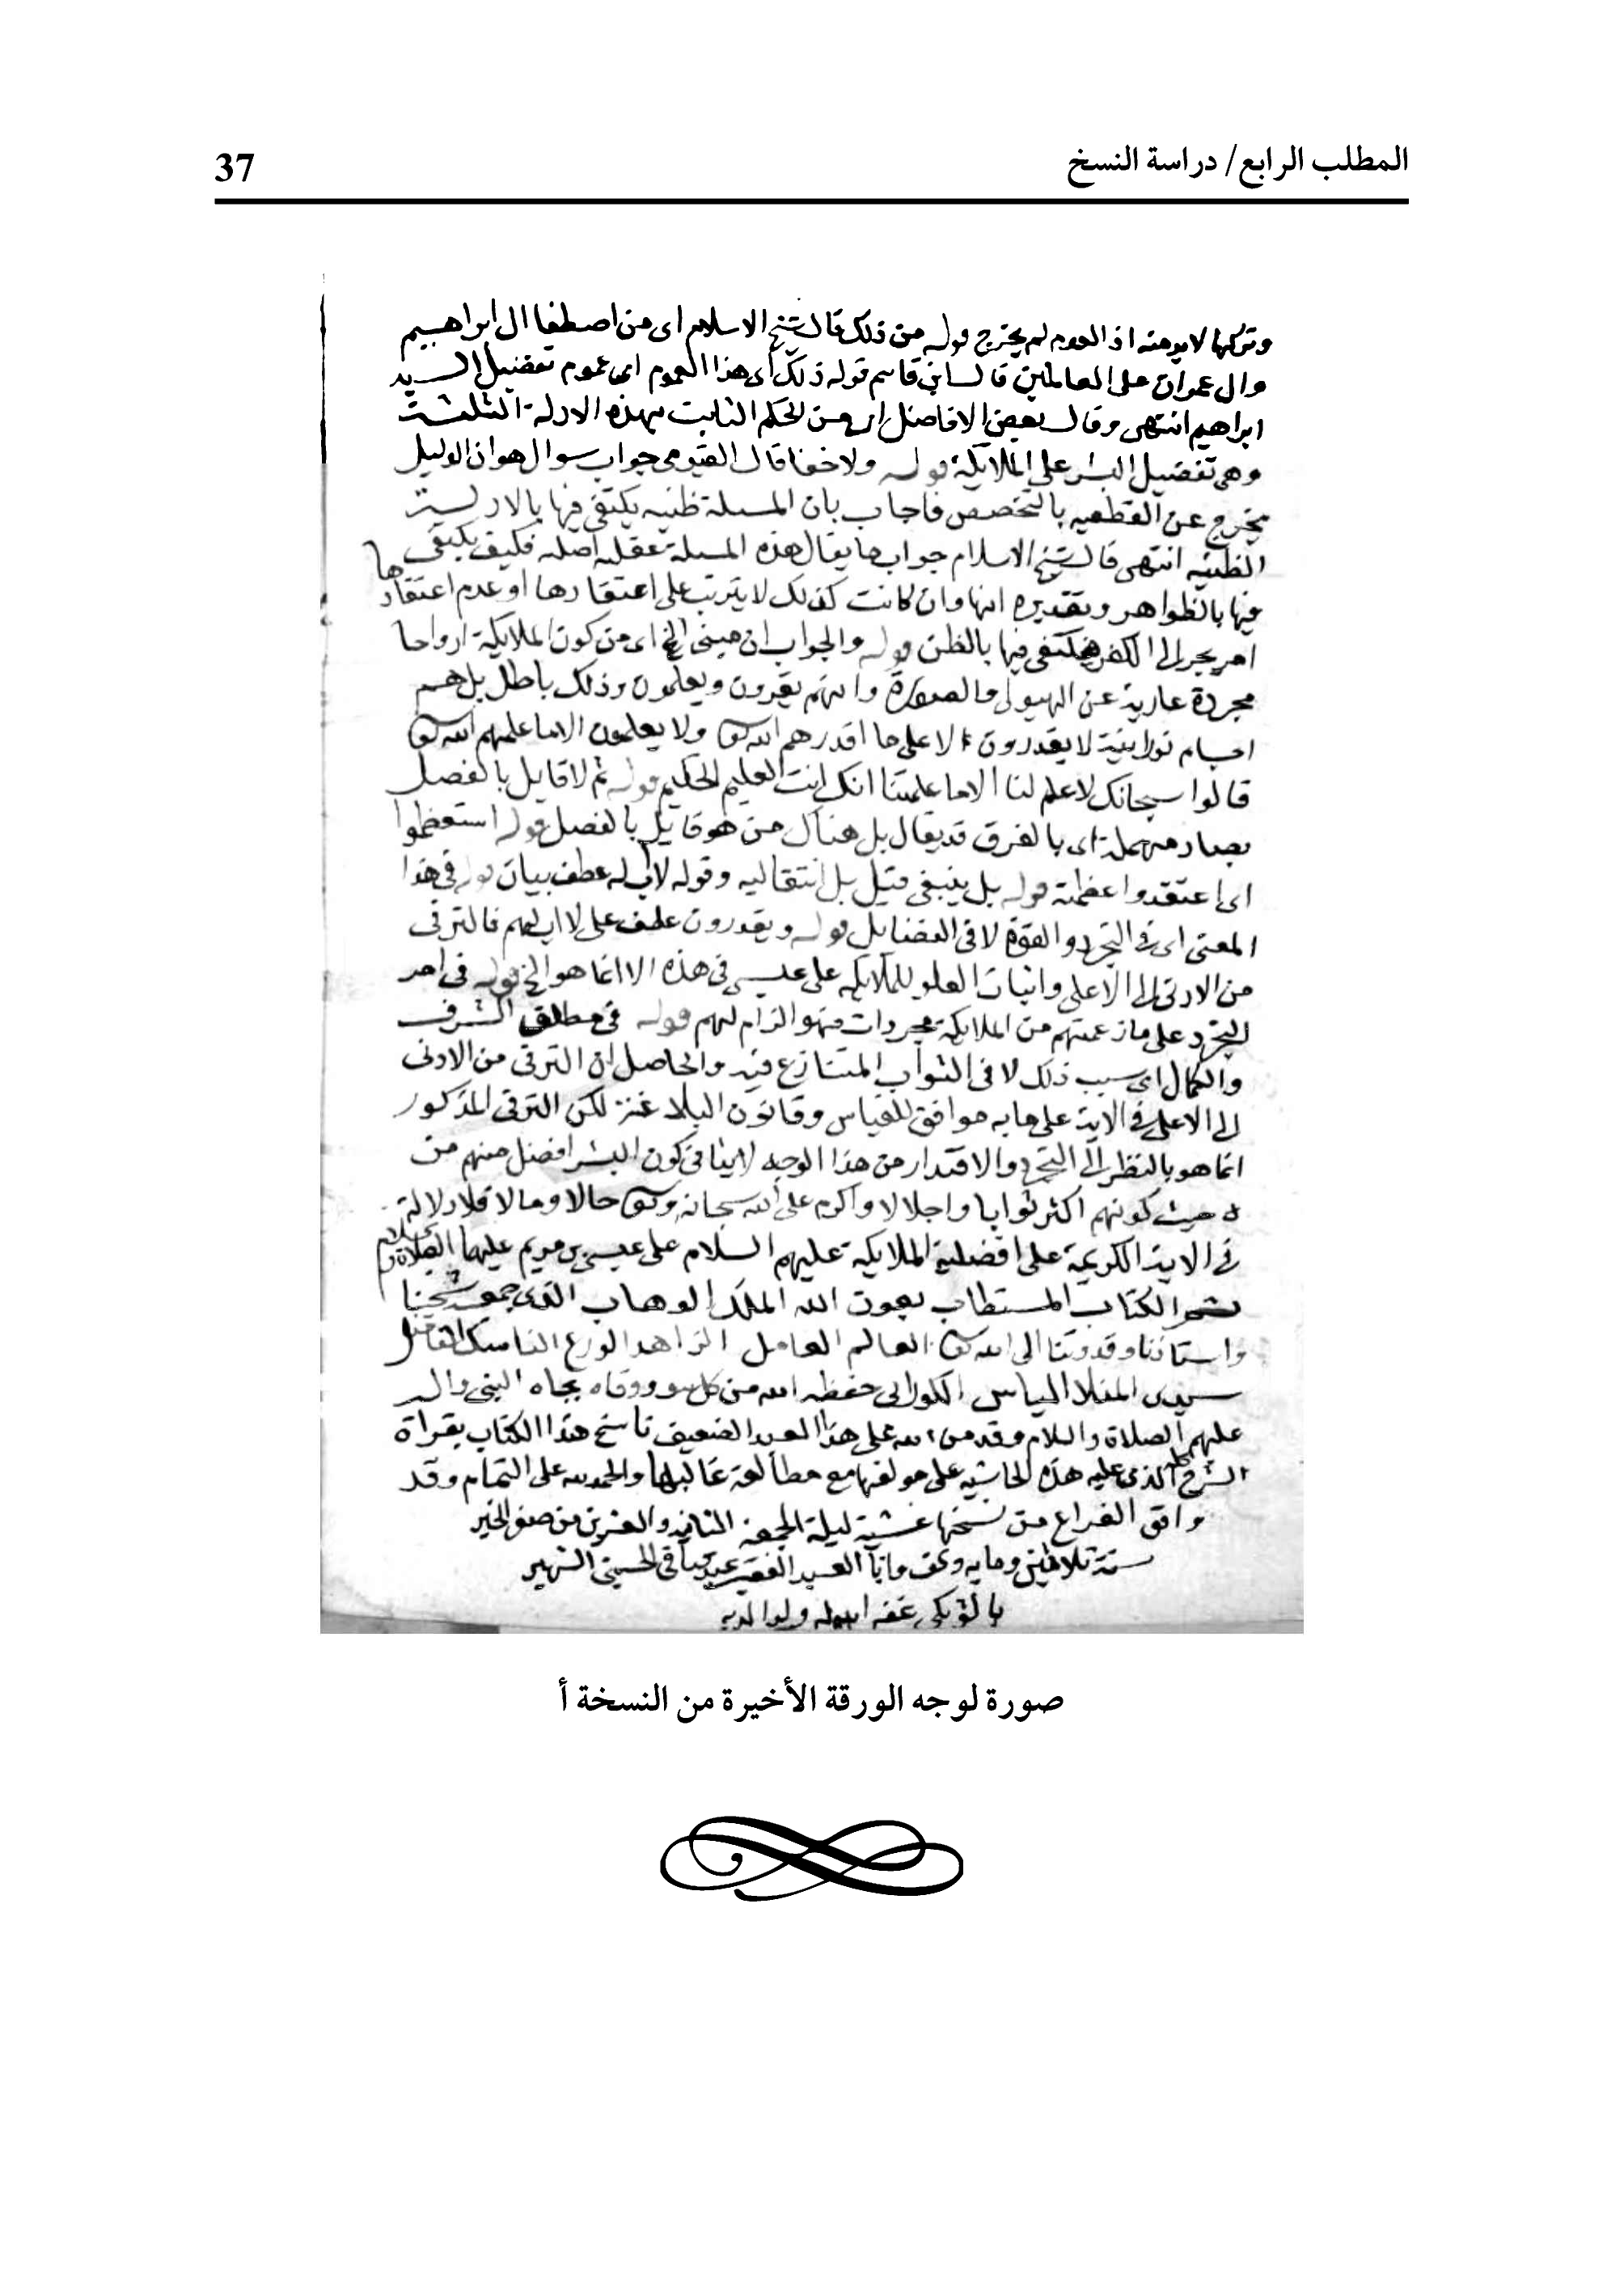 المطلب الرابع/ دراسة النسخ
37
من ذلك قال شيخ الاسلام اى من اصطفا ال ابراهيم
وال عمران على العالمين قال ابن قاسم قوله ذلك اى هذا العموم اى عموم تفضيل السيد
ابراهيم انتهى وقال بعض الافاضل اى من الحكم الثابت بهذه الادلة الثلثة
وهى تفضيل البشر على الملايكة قوله ولا خفا قال الفيومى جواب سوال هو ان الدليل
يخرج عن القطعيه بالتخصص فاجاب بان المسلة ظنيه يكتفى فيها بالادلة
الظنيه انتهى قال شيخ الاسلام جواب ما يقال هذه المسلة عقليه اصليه فكيف يكتفى
فيها بالظواهر وتقديره انها وان كانت كذلك لا يترتب على اعتقادها او عدم اعتقادها
امر يجر الى الكفر فيكتفى فيها بالظن قوله والجواب ان مبنى الخ اى من كون الملايكة ارواحا
مجردة عارية عن الهيولى والصورة وانهم يقدرون ويعلمون وذلك باطل بل هم
اجسام نورانية لا يقدرون الا على ما اقدرهم الله ولا يعلمون الا ما علمهم الله
قالوا سبحانك لا علم لنا الا ما علمتنا انك انت العليم الحكيم قوله ثم لا قايل بالفصل
بصاد مهملة اى بالفرق قد يقال بل هناك من هو قايل بالفصل قوله استعظموا
اى اعتقدوا عظمته قوله بل ينبغى قيل بل انتقاليه وقوله لا اب له عطف بيان قوله فى هذا
المعنى اى فى التجرد والقوة لا فى الفضايل قوله ويقدرون عطف على لا اب لهم فالترقى
من الادنى الى الاعلى واثبات العلو للملايكه على عيسى فى هذه الا انما هو الخ قوله فى امر
التجرد على ما زعمتهم من الملايكة مجردات فهو الزام لهم قوله فى مطلق الشرف
والكمال اى سبب ذلك لا فى الثواب المتنازع فيه والحاصل ان الترقى من الادنى
الى الاعلى فى الاية على ما به موافق للقياس وقانون البلاغة لكن الترقى المذكور
انما هو بالنظر الى التجرد والاقتدار من هذا الوجه لا ينافى كون البشر افضل منهم من
حيث كونهم اكثر ثوابا واجلالا واكرم على الله سبحانه حالا ومالا فلا دلالة
فى الاية الكريمة على افضلية الملايكة عليهم السلام على عيسى بن مريم عليهما الصلاة والسلام
الكتاب المستطاب بعون الله الملك الوهاب الذى جمعه شيخنا
واستاذنا وقدوتنا الى الله العالم العامل الزاهد الورع الناسك الفاضل
سيدى المنلا الياس الكورانى حفظه الله من كل سوء ووقاه بجاه النبى وال
عليهم الصلاة والسلام وقد من الله على هذا العبد الضعيف ناسخ هذا الكتاب بقراة
الشرح الذى عليه هذه الحاشيه على مولفها مع مطالعة غالبها والحمد لله على التمام وقد
وافق الفراغ من نسخها عشية ليلة الجمعة الثانيه والعشرين من صفر الخير
سنة ثلاثين ومايه والف وانا العبد الفقير عبد الباقى الحسينى الشهير
غفر الله له ولوالديه
صورة لوجه الورقة الأخيرة من النسخة أ